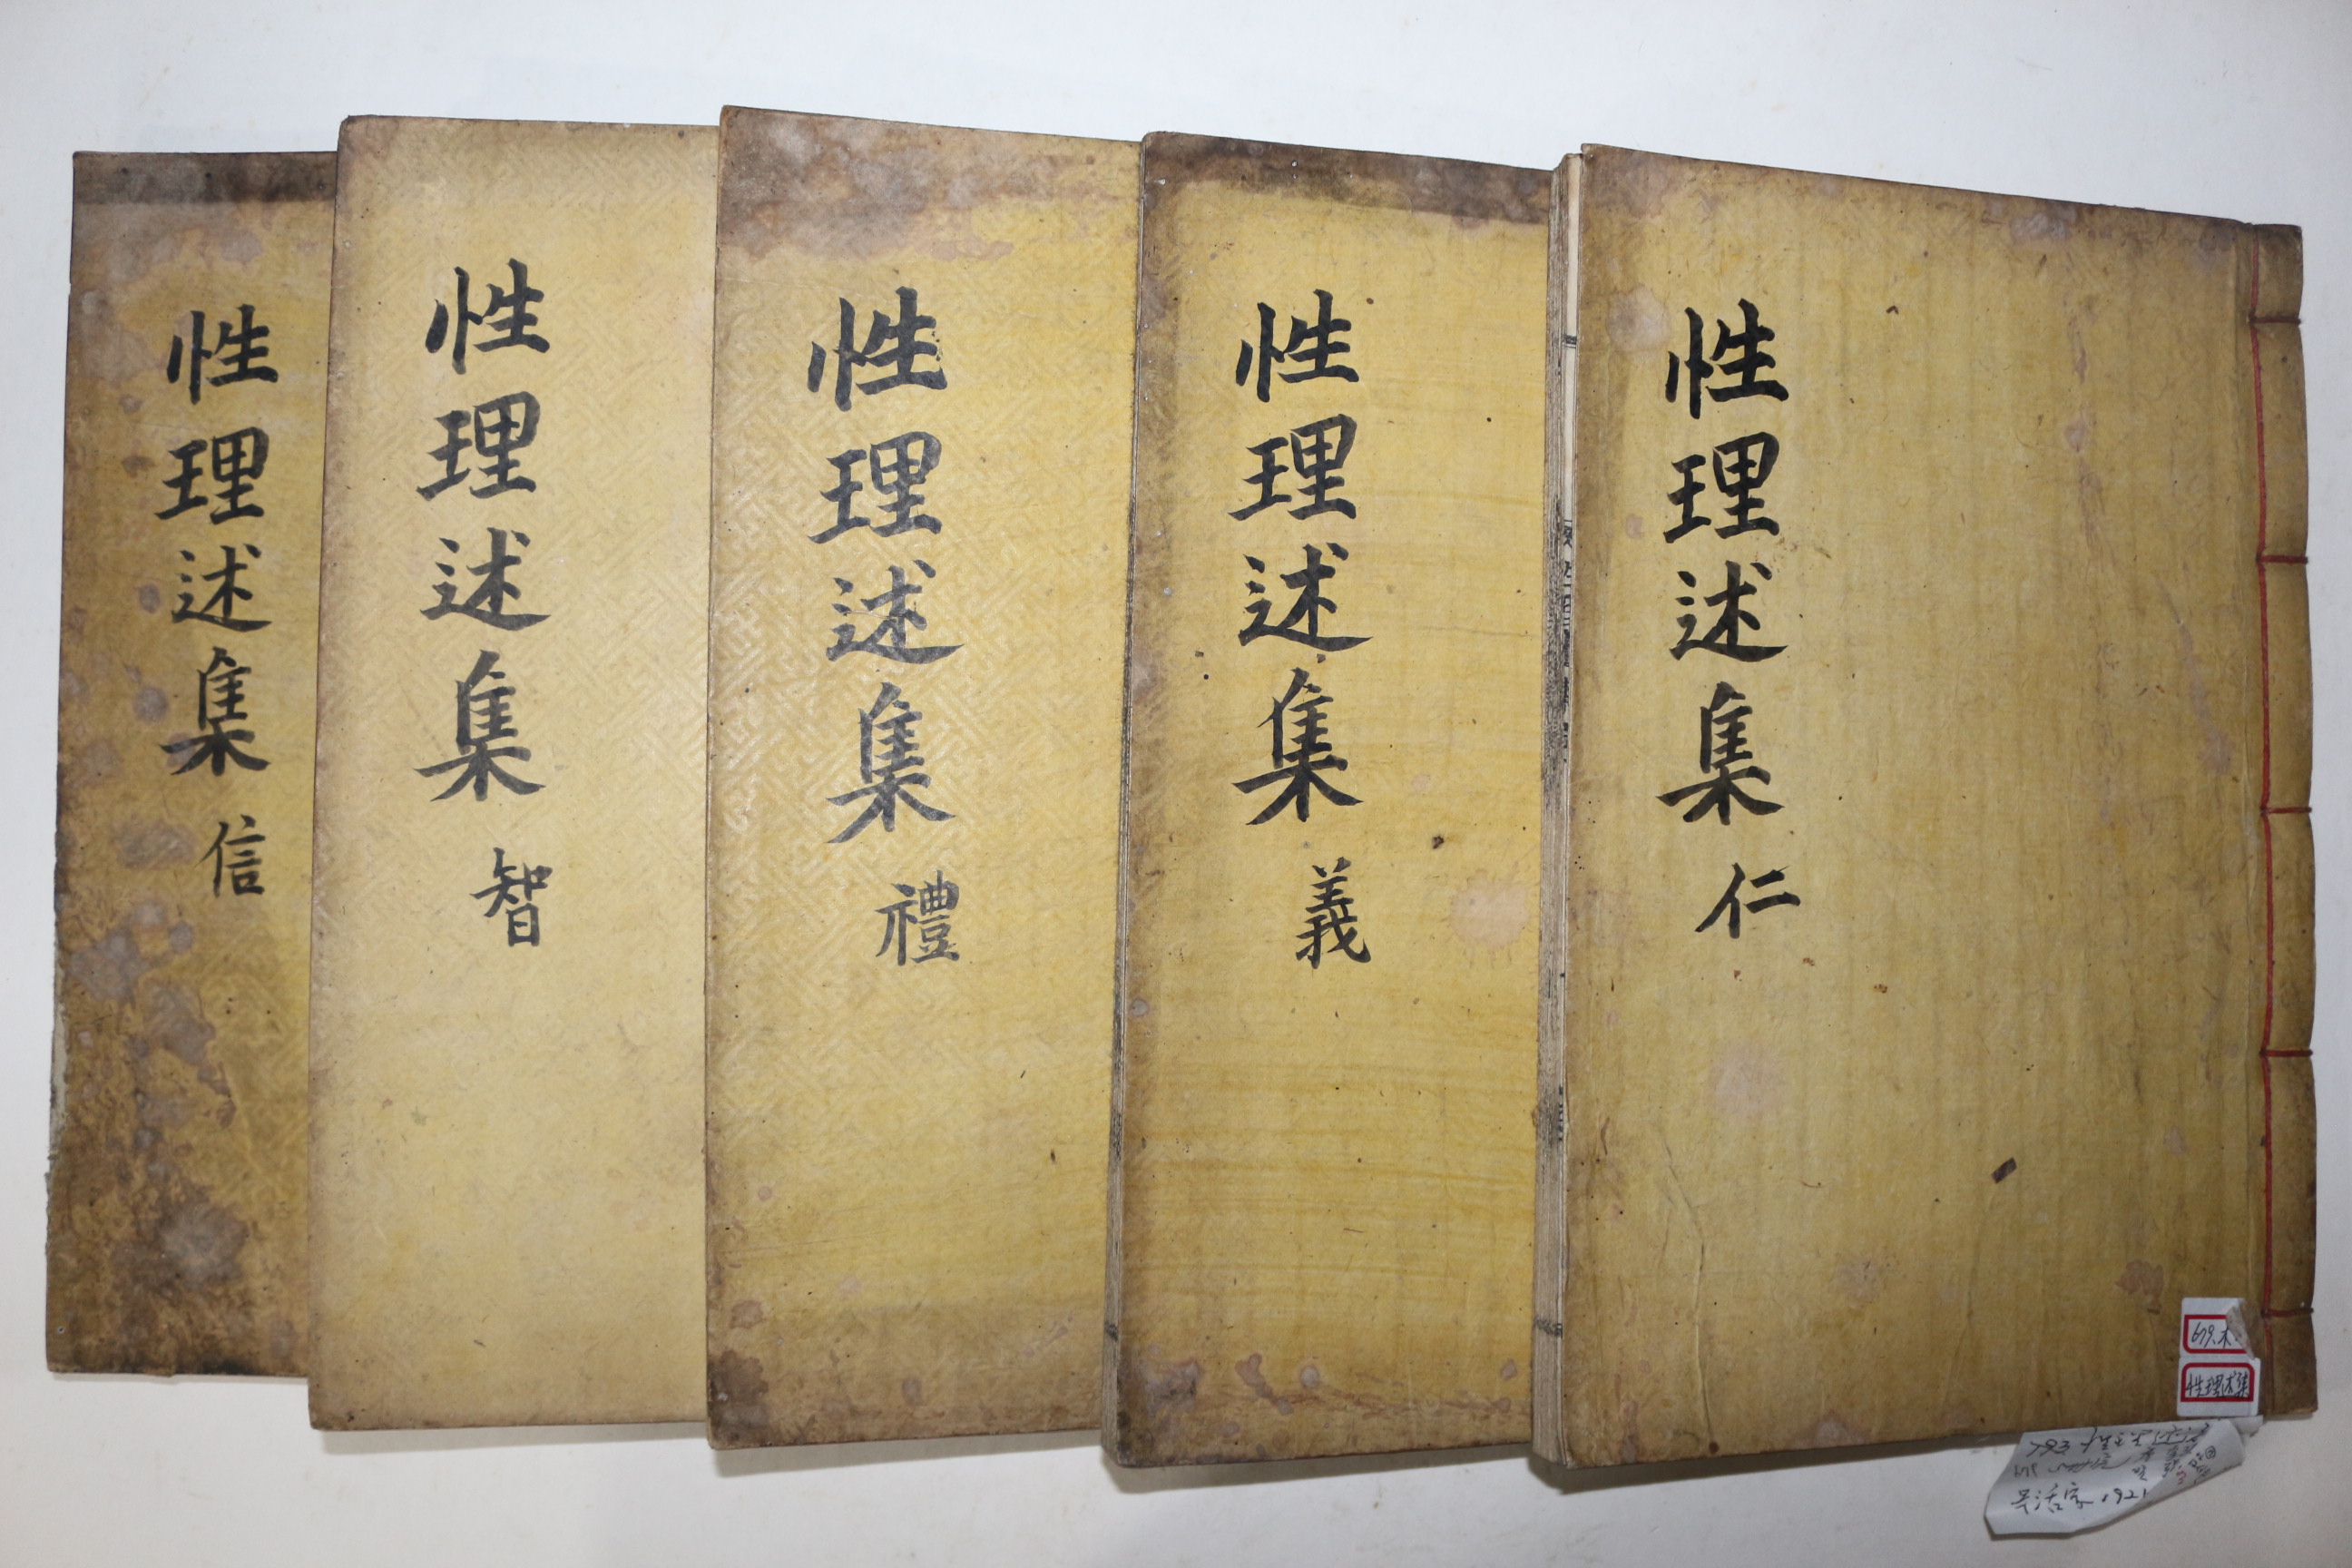 性理述集 仁
性理述集 義
性理述集 禮
性理述集 智
性理述集 信
679.木
性理述集
793
木活字 1921